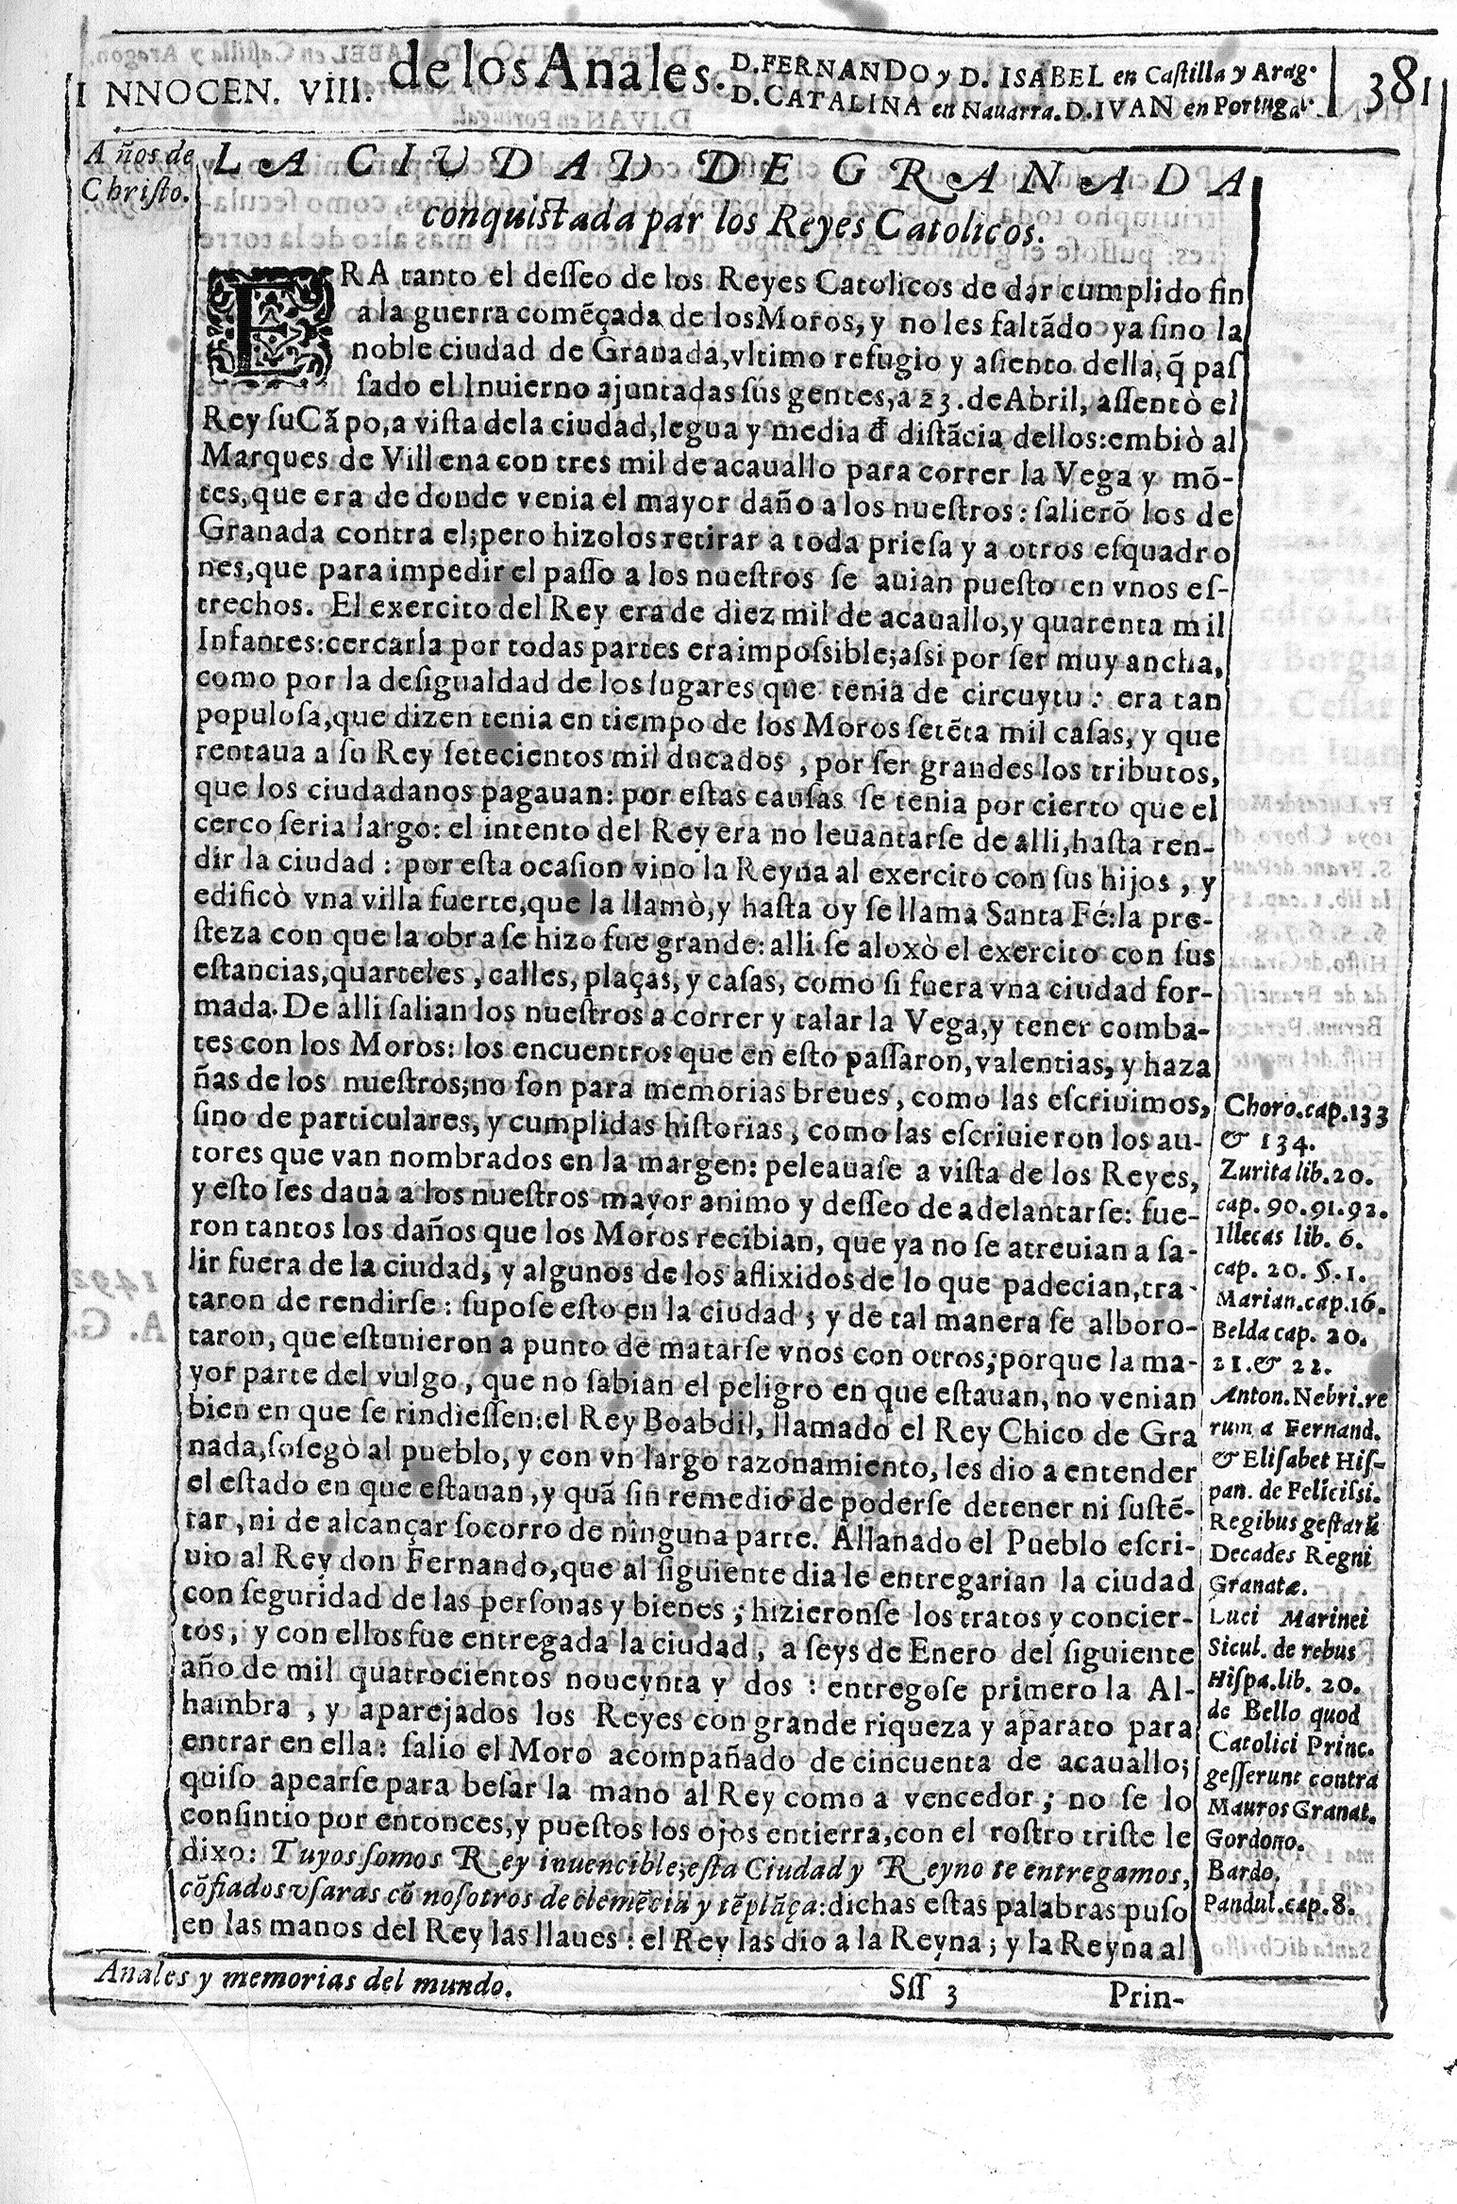 INNOCEN. VIII. de los Anales. D. FERNANDO y D. ISABEL en Castilla y Arag. 381
D. CATALINA en Nauarra. D. IVAN en Portugal.
Años de
Christo.
LA CIUDAD DE GRANADA
conquistada par los Reyes Catolicos.
ERA tanto el desseo de los Reyes Catolicos de dar cumplido fin
a la guerra comẽçada de los Moros, y no les faltãdo ya sino la
noble ciudad de Granada, vltimo refugio y asiento della, q̃ pas
sado el Inuierno ajuntadas sus gentes, a 23. de Abril, assentò el
Rey su Cãpo, a vista de la ciudad, legua y media đ distãcia dellos: embiò al
Marques de Villena con tres mil de acauallo para correr la Vega y mõ-
tes, que era de donde venia el mayor daño a los nuestros: salierõ los de
Granada contra el; pero hizolos retirar a toda priesa y a otros esquadro
nes, que para impedir el passo a los nuestros se auian puesto en vnos es-
trechos. El exercito del Rey era de diez mil de acauallo, y quarenta mil
Infantes: cercarla por todas partes era impossible; assi por ser muy ancha,
como por la desigualdad de los lugares que tenia de circuytu: era tan
populosa, que dizen tenia en tiempo de los Moros setẽta mil casas, y que
rentaua a su Rey setecientos mil ducados, por ser grandes los tributos,
que los ciudadanos pagauan: por estas causas se tenia por cierto que el
cerco seria largo: el intento del Rey era no leuantarse de alli, hasta ren-
dir la ciudad: por esta ocasion vino la Reyna al exercito con sus hijos, y
edificò vna villa fuerte, que la llamò, y hasta oy se llama Santa Fé: la pre-
steza con que la obra se hizo fue grande: alli se aloxò el exercito con sus
estancias, quarteles, calles, plaças, y casas, como si fuera vna ciudad for-
mada. De alli salian los nuestros a correr y talar la Vega, y tener comba-
tes con los Moros: los encuentros que en esto passaron, valentias, y haza
ñas de los nuestros; no son para memorias breues, como las escriuimos,
sino de particulares, y cumplidas historias, como las escriuieron los au-
tores que van nombrados en la margen: peleauase a vista de los Reyes,
y esto les daua a los nuestros mayor animo y desseo de adelantarse: fue-
ron tantos los daños que los Moros recibian, que ya no se atreuian a sa-
lir fuera de la ciudad, y algunos de los aflixidos de lo que padecian, tra-
taron de rendirse: supose esto en la ciudad; y de tal manera se alboro-
taron, que estuuieron a punto de matarse vnos con otros; porque la ma-
yor parte del vulgo, que no sabian el peligro en que estauan, no venian
bien en que se rindiessen: el Rey Boabdil, llamado el Rey Chico de Gra
nada, sosegò al pueblo, y con vn largo razonamiento, les dio a entender
el estado en que estauan, y quã sin remedio de poderse detener ni sustẽ-
tar, ni de alcançar socorro de ninguna parte. Allanado el Pueblo escri-
uio al Rey don Fernando, que al siguiente dia le entregarian la ciudad
con seguridad de las personas y bienes; hizieronse los tratos y concier-
tos, y con ellos fue entregada la ciudad, a seys de Enero del siguiente
año de mil quatrocientos noueynta y dos: entregose primero la Al-
hambra, y aparejados los Reyes con grande riqueza y aparato para
entrar en ella: salio el Moro acompañado de cincuenta de acauallo;
quiso apearse para besar la mano al Rey como a vencedor; no se lo
consintio por entonces, y puestos los ojos en tierra, con el rostro triste le
dixo: Tuyos somos Rey inuencible; esta Ciudad y Reyno te entregamos,
cõfiados vsaras cõ nosotros de clemẽcia y tẽplãça: dichas estas palabras puso
en las manos del Rey las llaues: el Rey las dio a la Reyna; y la Reyna al
Choro. cap. 133
& 134.
Zurita lib. 20.
cap. 90. 91. 92.
Illecas lib. 6.
cap. 20. §. 1.
Marian. cap. 16.
Belda cap. 20.
21. & 22.
Anton. Nebri. re
rum a Fernand.
& Elisabet His-
pan. de Felicissi.
Regibus gestarũ
Decades Regni
Granatæ.
Luci Marinei
Sicul. de rebus
Hispa. lib. 20.
de Bello quod
Catolici Princ.
gesserunt contra
Mauros Granat.
Gordono.
Bardo.
Pandul. cap. 8.
Anales y memorias del mundo. Sss 3 Prin-